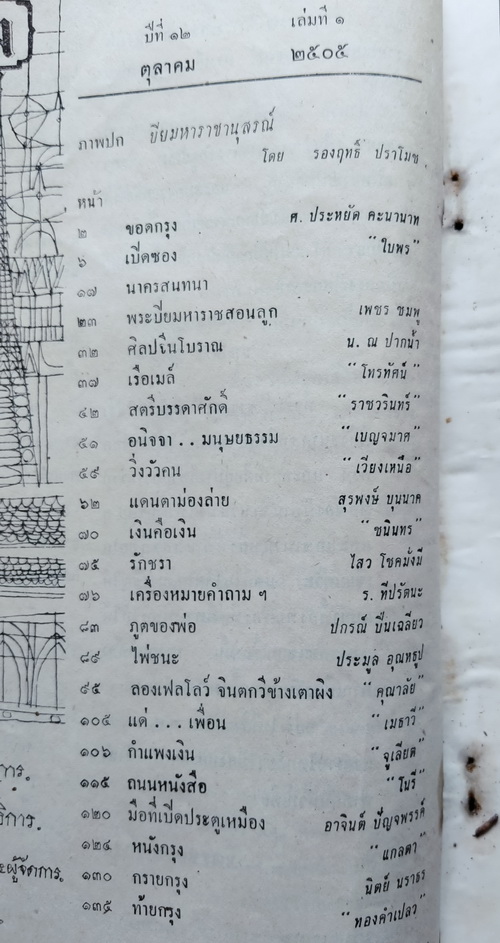 ปีที่ ๑๒ เล่มที่ ๑
ตุลาคม ๒๕๐๕
ภาพปก ปิยมหาราชานุสรณ์
โดย รองฤทธิ์ ปราโมช
หน้า
๒ ขอดกรุง ศ. ประหยัด คะนานาท
๖ เปิดซอง "ใบพร"
๑๗ นาครสนทนา
๒๓ พระปิยมหาราชสอนลูก เพชร ชมพู
๓๒ ศิลปในโบราณ น. ณ ปากน้ำ
๓๗ เรือเมล์ "โทรทัศน์"
๔๒ สตรีบรรดาศักดิ์ "ราชวรินทร์"
๕๑ อนิจจา . . มนุษยธรรม "เบญจมาศ"
๕๙ วิ่งวัวคน "เวียงเหนือ"
๖๒ แดนตาม่องล่าย สุรพงษ์ บุนนาค
๗๐ เงินคือเงิน "ชนินทร"
๗๕ รักชรา ไสว โชคมั่งมี
๗๖ เครื่องหมายคำถาม ฯ ร. ทีปรัตนะ
๘๓ ภูตของพ่อ ปกรณ์ ปิ่นเฉลียว
๘๙ ไพ่ชนะ ประมูล อุณหธูป
๙๕ ลองเฟลโลว์ จินตกวีข้างเตาผิง "คุณาลัย"
๑๐๕ แด่ . . . เพื่อน "เมธาวี"
๑๐๖ กำแพงเงิน "จูเลียต"
๑๑๕ ถนนหนังสือ "โบรี"
๑๒๐ มือที่เปิดประตูเหมือง อาจินต์ ปัญจพรรค์
๑๒๔ หนังกรุง "แกลดา"
๑๓๐ กรายกรุง นิตย์ นราธร
๑๓๕ ท้ายกรุง "ทองคำเปลว"
การ.
ริการ.
ผู้จัดการ.